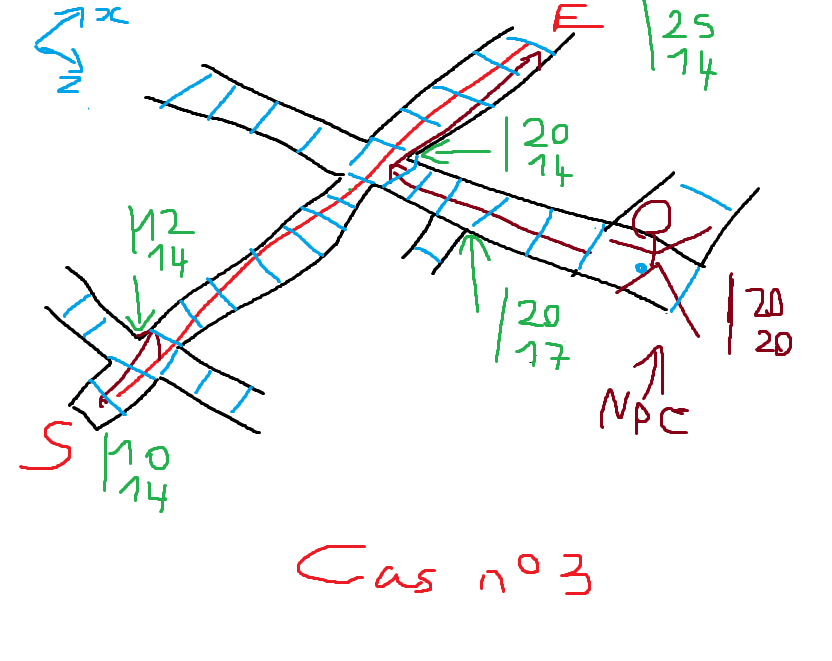 x
z
E
25
14
20
14
12
14
20
17
20
20
NPC
S
10
14
Cas n°3